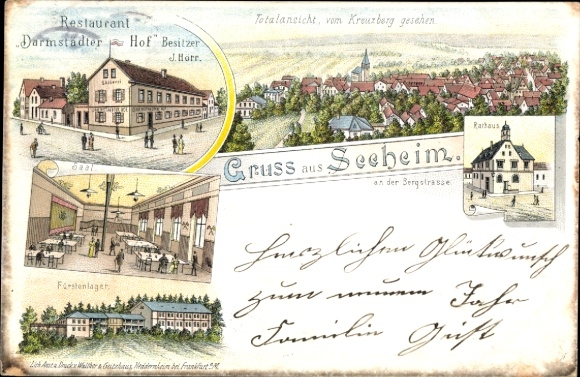 Restaurant
„Darmstädter Hof" Besitzer
J. Hörr.
Totalansicht, vom Kreuzberg gesehen.
Bäckerei
Rathaus.
Gruss aus Seeheim.
an der Bergstrasse.
Saal
Fürstenlager.
Herzlichen Glückwunsch
zum neuem Jahr
Familie Geist
Lith. Anst. u. Druck v. Walther &
Heddernheim bei Frankfurt a/M.